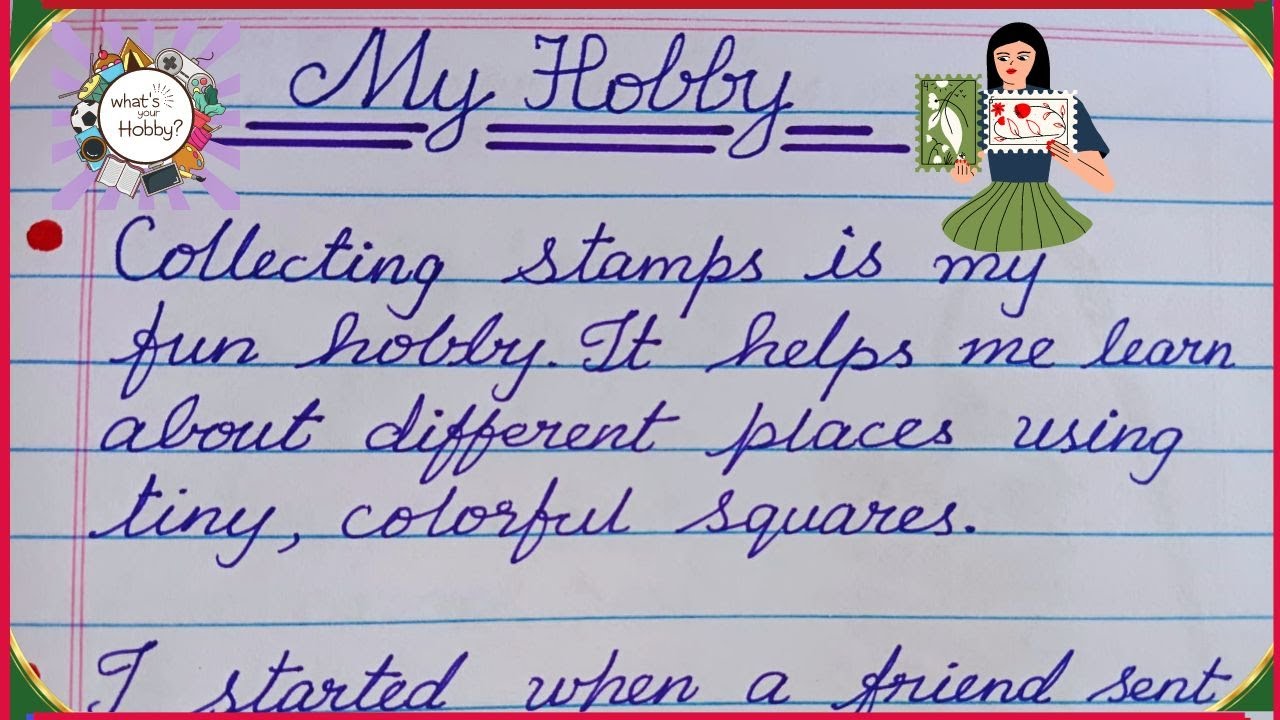 what's
your
Hobby?
My Hobby
Collecting stamps is my
fun hobby. It helps me learn
about different places using
tiny, colorful squares.
I started when a friend sent